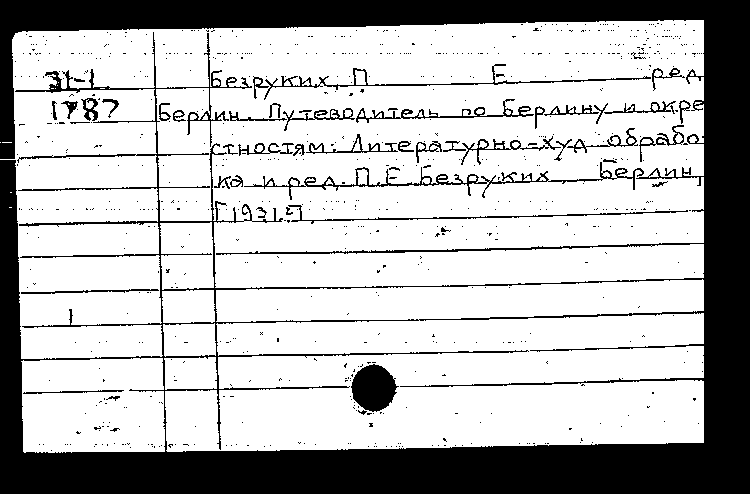 31-1 Безруких, П Е ред
1787 Берлин. Путеводитель по Берлину и окре
стностям. Литературно-худ обрабо-
ка и ред. П.Е Безруких. Берлин,
[1931.]
1